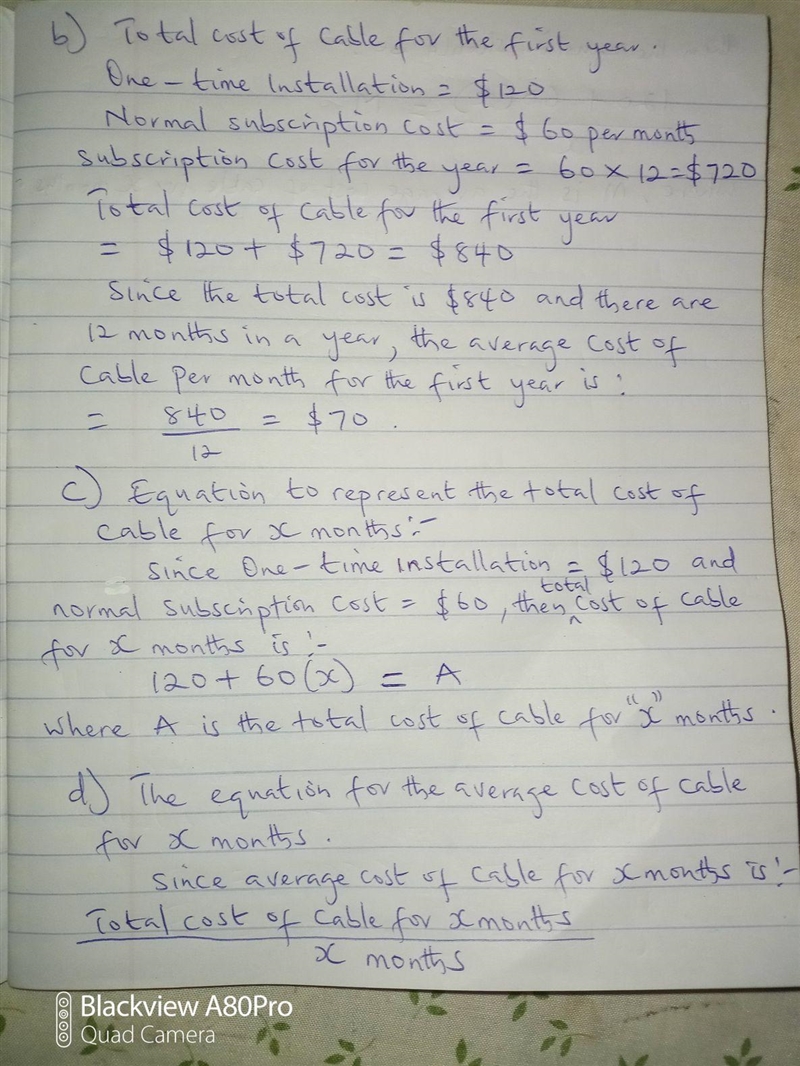 b) Total cost of Cable for the first year.
One-time Installation = $120
Normal subscription cost = $60 per month
subscription cost for the year = 60 × 12 = $720
Total cost of Cable for the first year
= $120 + $720 = $840
Since the total cost is $840 and there are
12 months in a year, the average cost of
Cable Per month for the first year is:
= 840/12 = $70.
c) Equation to represent the total cost of
cable for x months:-
Since One-time installation = $120 and
normal subscription cost = $60, then total cost of cable
for x months is :-
120 + 60(x) = A
where A is the total cost of cable for "x" months.
d) The equation for the average cost of cable
for x months.
Since average cost of Cable for x months is :-
Total cost of Cable for x months
x months
Blackview A80Pro
Quad Camera